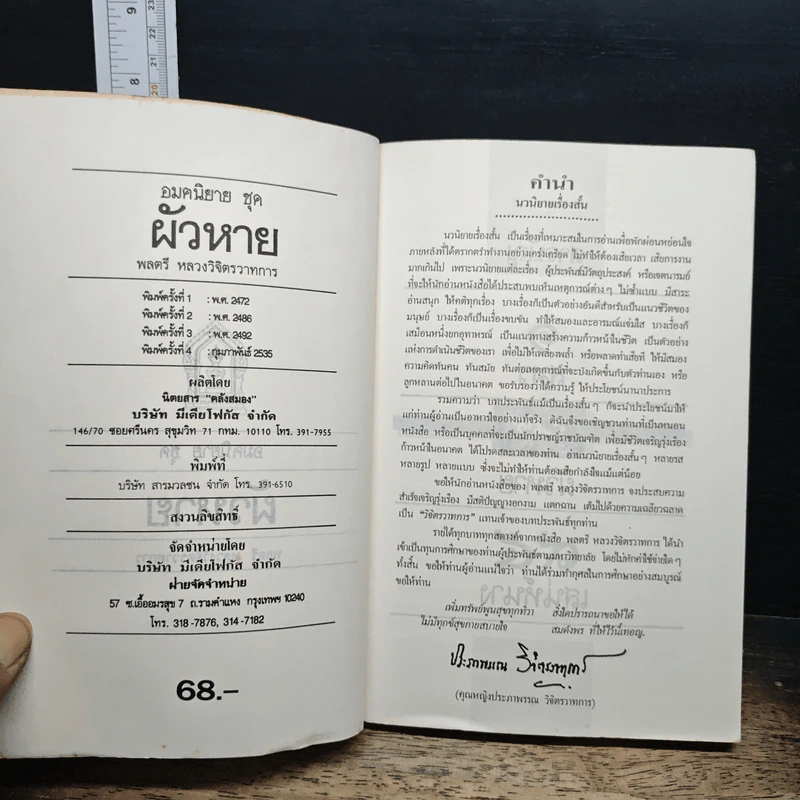 อมคนิยาย ชุด
ผัวหาย
พลตรี หลวงวิจิตรวาทการ
พิมพ์ครั้งที่ 1 : พ.ศ. 2472
พิมพ์ครั้งที่ 2 : พ.ศ. 2486
พิมพ์ครั้งที่ 3 : พ.ศ. 2492
พิมพ์ครั้งที่ 4 : กุมภาพันธ์ 2535
ผลิตโดย
นิตยสาร "คลังสมอง"
บริษัท มีเดียโฟกัส จำกัด
146/70 ซอยศรีนคร สุขุมวิท 71 กทม. 10110 โทร. 391-7955
พิมพ์ที่
บริษัท สารมวลชน จำกัด โทร. 391-6510
สงวนลิขสิทธิ์
จัดจำหน่ายโดย
บริษัท มีเดียโฟกัส จำกัด
ฝ่ายจัดจำหน่าย
57 ซ.เอื้ออมรสุข 7 ถ.รามคำแหง กรุงเทพฯ 10240
โทร. 318-7876, 314-7182
68.–
คำนำ
นวนิยายเรื่องสั้น
นวนิยายเรื่องสั้น เป็นเรื่องที่เหมาะสมในการอ่านเพื่อพักผ่อนหย่อนใจ
ภายหลังที่ได้ตรากตรำทำงานอย่างเคร่งเครียด ไม่ทำให้ต้องเสียเวลา เสียการงาน
มากเกินไป เพราะนวนิยายแต่ละเรื่อง ผู้ประพันธ์มีวัตถุประสงค์ หรือเจตนารมย์
ที่จะให้นักอ่านหนังสือได้ประสบพบเห็นเหตุการณ์ต่างๆ ไม่ซ้ำแบบ มีสาระ
อ่านสนุก ให้คติทุกเรื่อง บางเรื่องก็เป็นตัวอย่างอันดีสำหรับเป็นแนวชีวิตของ
มนุษย์ บางเรื่องก็เป็นเรื่องขบขัน ทำให้สมองและอารมณ์แจ่มใส บางเรื่องก็
เสมือนหนึ่งยกอุทาหรณ์ เป็นแนวทางสร้างความก้าวหน้าในชีวิต เป็นตัวอย่าง
แห่งการดำเนินชีวิตของเรา เพื่อไม่ให้เพลี่ยงพล้ำ หรือพลาดท่าเสียที ให้มีสมอง
ความคิดทันคน ทันสมัย ทันต่อเหตุการณ์ที่จะบังเกิดขึ้นกับตัวท่านเอง หรือ
ลูกหลานต่อไปในอนาคต ขอรับรองว่าได้ความรู้ ให้ประโยชน์นานาประการ
รวมความว่า บทประพันธ์แม้เป็นเรื่องสั้นๆ ก็จะนำประโยชน์มาให้
แก่ท่านผู้อ่านเป็นอาหารใจอย่างแท้จริง ดิฉันจึงขอเชิญชวนท่านที่เป็นหนอน
หนังสือ หรือเป็นบุคคลที่จะเป็นนักปราชญ์ราชบัณฑิต เพื่อมีชีวิตเจริญรุ่งเรือง
ก้าวหน้าในอนาคต ได้โปรดสละเวลาของท่าน อ่านนวนิยายเรื่องสั้นๆ หลายรส
หลายรูป หลายแบบ ซึ่งจะไม่ทำให้ท่านต้องเสียกำลังใจแม้แต่น้อย
ขอให้นักอ่านหนังสือของ พลตรี หลวงวิจิตรวาทการ จงประสบความ
สำเร็จเจริญรุ่งเรือง มีสติปัญญางอกงาม แตกฉาน เต็มไปด้วยความเฉลียวฉลาด
เป็น "วิจิตรวาทการ" แทนเจ้าของบทประพันธ์ทุกท่าน
รายได้ทุกบาททุกสตางค์จากหนังสือ พลตรี หลวงวิจิตรวาทการ ได้นำ
เข้าเป็นทุนการศึกษาของท่านผู้ประพันธ์ตามมหาวิทยาลัย โดยไม่หักค่าใช้จ่ายใดๆ
ทั้งสิ้น ขอให้ท่านผู้อ่านแน่ใจว่า ท่านได้ร่วมทำกุศลในการศึกษาอย่างสมบูรณ์
ขอให้ท่าน
เพิ่มทรัพย์พูนสุขทุกทิวา สิ่งใดปรารถนาขอให้ได้
ไม่มีทุกข์สุขกายสบายใจ สมดังพร ที่ให้ไว้นี้เทอญ.
ประภาพรรณ วิจิตรวาทการ
(คุณหญิงประภาพรรณ วิจิตรวาทการ)